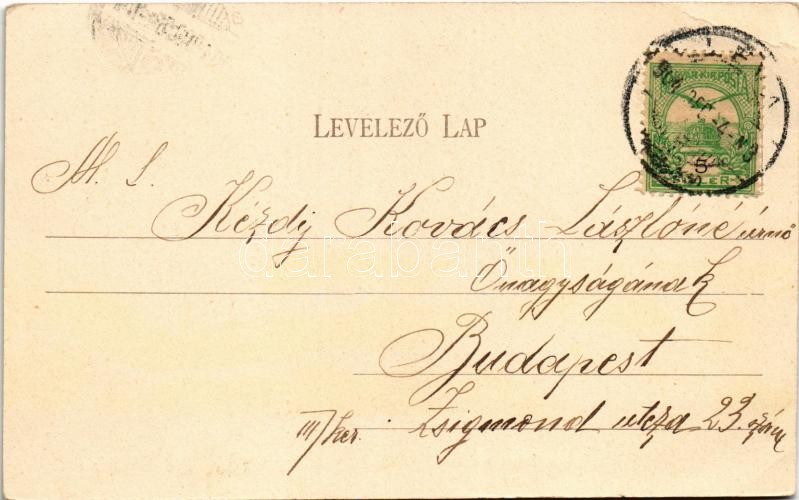 LEVELEZŐ LAP
M. S.
Kézdy Kovács Lászlóné úrnő
Őnagyságának
Budapest
III/ker. Zsigmond utcza 23. szám
MAGYAR KIR. POSTA
5
darabanth